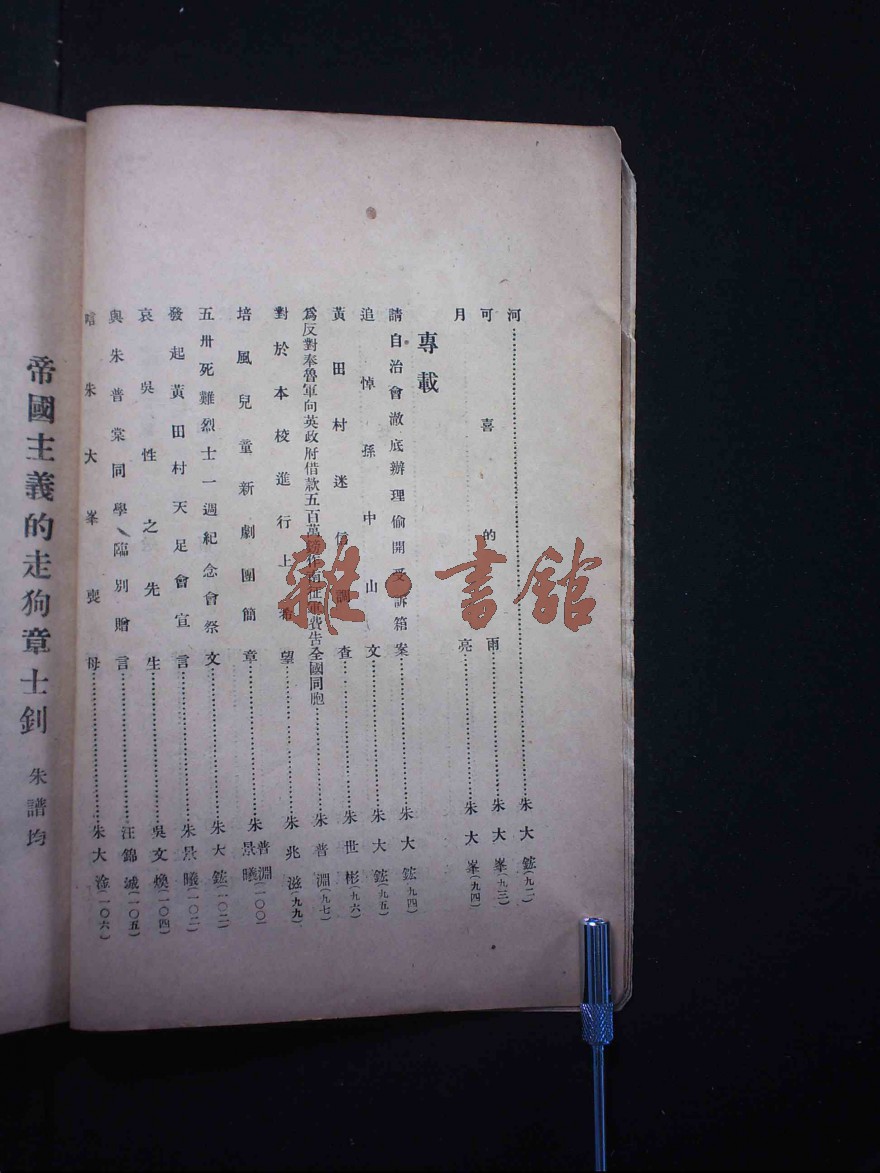 河………朱大鋐(九二)
可喜的雨………朱大峯(九三)
月亮………朱大峯(九四)
專載
請自治會澈底辦理偷開受訴箱案………朱大鋐(九四)
追悼孫中山文………朱大鋐(九五)
黃田村迷信調查………朱世彬(九六)
爲反對奉魯軍向英政府借款五百萬鎊作南征軍費告全國同胞………朱普淵(九七)
對於本校進行上希望………朱兆滋(九九)
培風兒童新劇團簡章………朱普淵景曦(一〇〇)
五卅死難烈士一週紀念會祭文………朱大鋐(一〇二)
發起黃田村天足會宣言………朱景曦(一〇二)
哀吳性之先生………吳文煥(一〇四)
與朱普棠同學臨別贈言………汪錦誠(一〇五)
唁朱大峯喪母………朱大淦(一〇六)
帝國主義的走狗章士釗 朱譜均
雜·書館